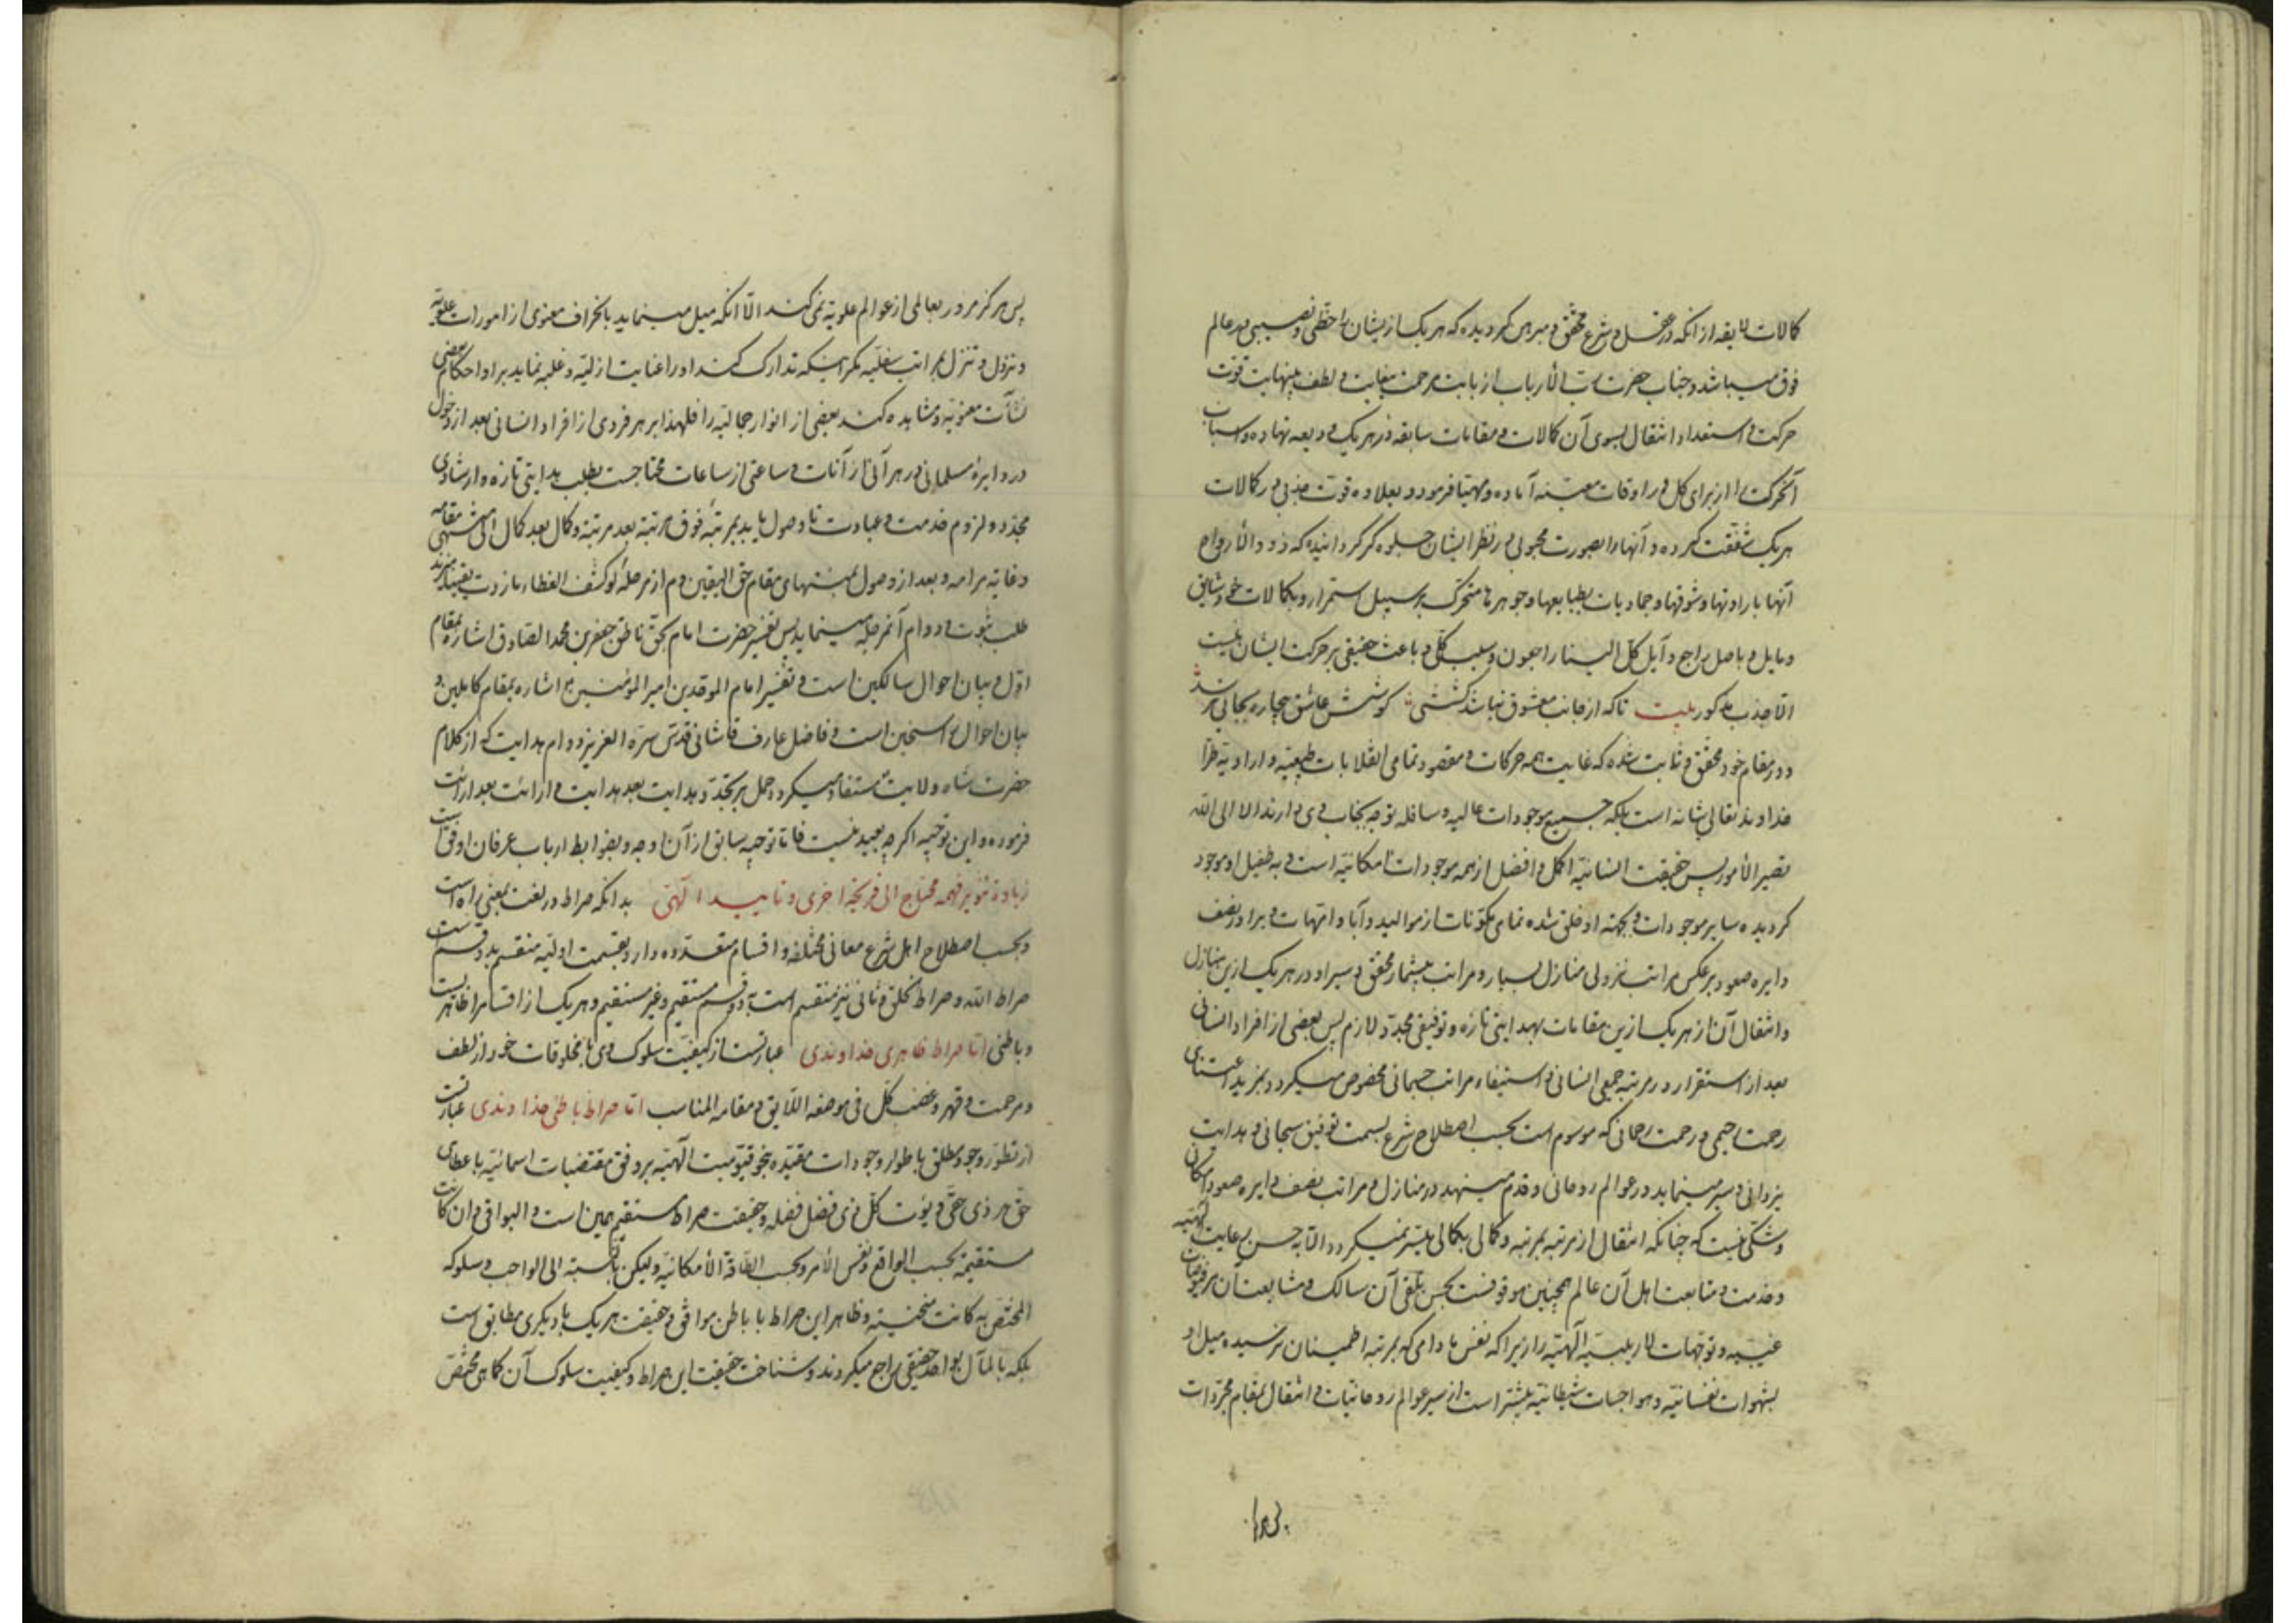 کمالات لایقه از انکه در عقل و شرع محقق و مبرهن کردیده که هر یک از ایشان را حظی و نصیبی در عالم
فوق میباشد و جناب حضرت رب الأرباب از بابت مرحمت بیغایت و لطف بینهایت قوت
حرکت و استعداد انتقال بسوی آن کمالات و مقامات سابقه در هر یک ودیعه نهاده و اسباب
آنحرکت را از برای کل در اوقات معینه آماده و مهیا فرمود و بعلاوه قوت جذبی در کمالات
هر یک شفقت کرده و آنها را بصورت محبوبی در نظر ایشان جلوه کر کردانیده که ذوو الأرواح
آنها باراداتها و شوقها و جمادیات بطبایعها و جوهرها متحرک بر سبیل استمرار و بکمالات خود شایق
و مایل و باصل راجع و آیل کل الینا راجعون و سلب کلی و باعث حقیقی بر حرکت ایشان نیست
الا جذب مذکور بیت تا که از جانب معشوق نباشد کششی کوشش عاشق بیچاره بجائی نرسد
و در مقام خود محقق و ثابت شده که غایت همه حرکات و مقصود تمامی انقلابات طبیعیه و ارادیه طرا
خداوند تعالی شانه است بلکه جمیع موجودات عالیه و سافله توجه بجناب وی دارند الا الی الله
تصیر الأمور پس حقیقت انسانیه اکمل و افضل از همه موجودات امکانیه است و به طفیل او موجود
کردیده سایر موجودات و بجهته او خلق شده تمامی مکونات از موالید و آباء و امهات و برادر نصف
دایره صعود بر عکس مراتب نزولی منازل بسیار و مراتب بیشمار محقق و سیر او در هر یک ازین منازل
و انتقال آن از هر یک ازین مقامات بهدایتی تازه و توفیقی مجدد لازم پس بعضی از افراد انسانی
بعد از استقرار در مرتبه جمیعی انسانی و استیفاء مراتب جسمانی مخصوص میکردد بمزید اعتنای
رحمت رحیمی و رحمت رحمانی که موسوم است بحسب اصطلاح شرع بسمت توفیق سبحانی و هدایت
یزدانی و سیر مینماید در عوالم روحانی و قدم مینهد در منازل و مراتب نصف دایره صعود امکانی
و شکی نیست که چنانکه انتقال از مرتبه بمرتبه و کمالی بکمالی میسر نمیکردد الا به حسن رعایت الهیه
و خدمت و متابعت اهل آن عالم همچنین موقوفست بحسن تلقی آن سالک و مشایعت آن مر فیوضات
غیبیه و توجهات لاریبیه الهیه را زیرا که نفس مادامی که بمرتبه اطمینان نرسیده میل او
بشهوات نفسانیه و هواجسات شیطانیه بیشتر است از سیر عوالم روحانیات و انتقال بمقام مجردات
پس هرکز مرور بعالمی از عوالم علویه نمی کند الا آنکه میل مینماید بانحراف معنوی از امورات علویه
و نزول و تنزل بمراتب سفلیه مکر اینکه تدارک کند او را عنایت ازلیه و غلبه نماید بر او احکام بعضی
نشآت معنویه و مشاهده کند بعضی از انوار جمالیه را فلهذا بر هر فردی از افراد انسانی بعد از دخول
در دایره مسلمانی در هر آنی از آنات و ساعتی از ساعات محتاجست بطلب هدایتی تازه و ارشادی
مجدد و لزوم خدمت و عبادت تا وصول یابد بمرتبه فوق مرتبه بعد مرتبه و کمال بعد کمال الی منتهی مقامه
و غایة مرامه و بعد از وصول بمنتهای مقام حق الیقین و دم از مرحله لو کشف الغطاء ما ازددت یقینا میزند
طلب ثبوت و دوام آنمرحله مینماید پس تفسیر حضرت امام بحق ناطق جعفر بن محمد الصادق اشاره بمقام
اول و بیان احوال سالکین است و تفسیر امام الموحدین امیر المومنین ع اشاره بمقام کاملین و
بیان احوال راسخین است و فاضل عارف قاشانی قدس سره العزیز دوام هدایت که از کلام
حضرت شاه ولایت مستفاد میکردد حمل بر تجدد هدایت بعد هدایت و ارائت بعد ارائت
فرموده و این توجیه اکر چه بعید نیست فاما توجیه سابق از آن اوجه و بضوابط ارباب عرفان اوفق است
زیادة تنویر فهمه محتاج الی قریحة اخری و تایید الهی بدانکه صراط در لغت بمعنی راه است
و بحسب اصطلاح اهل شرع معانی مختلفه و اقسام متعدده دارد بقسمت اولیه منقسم بدو قسمست
صراط الله و صراط خلق و ثانی نیز منقسم است بدو قسم مستقیم و غیر مستقیم و هر یک از اقسام را ظاهریست
و باطنی اما صراط ظاهری خداوندی عبارتست از کیفیت سلوک وی با مخلوقات خود از لطف
و مرحمت و قهر و غضب کل فی موضعه اللایق و مقامه المناسب اما صراط باطنی خداوندی عبارتست
از تطور وجود مطلق باطوار وجودات مقیده بنحو قیومیت الهیه بر وفق مقتضیات اسمائیه با عطای
حق هر ذی حقی و یؤت کل ذی فضل فضله و حقیقت صراط مستقیم همین است و البواقی و ان کانت
مستقیمة بحسب الواقع و نفس الأمر و بحسب الطاقة الأمکانیه ولیکن بالنسبة الی الواجب و سلوکه
المختص به کانت منحنیة و ظاهر این صراط با باطن موافق و حقیقت هر یک با دیکری مطابق است
بلکه بالمآل بواحد حقیقی راجع میکردند و شناخت حقیقت این صراط و کیفیت سلوک آن کماهی مختص